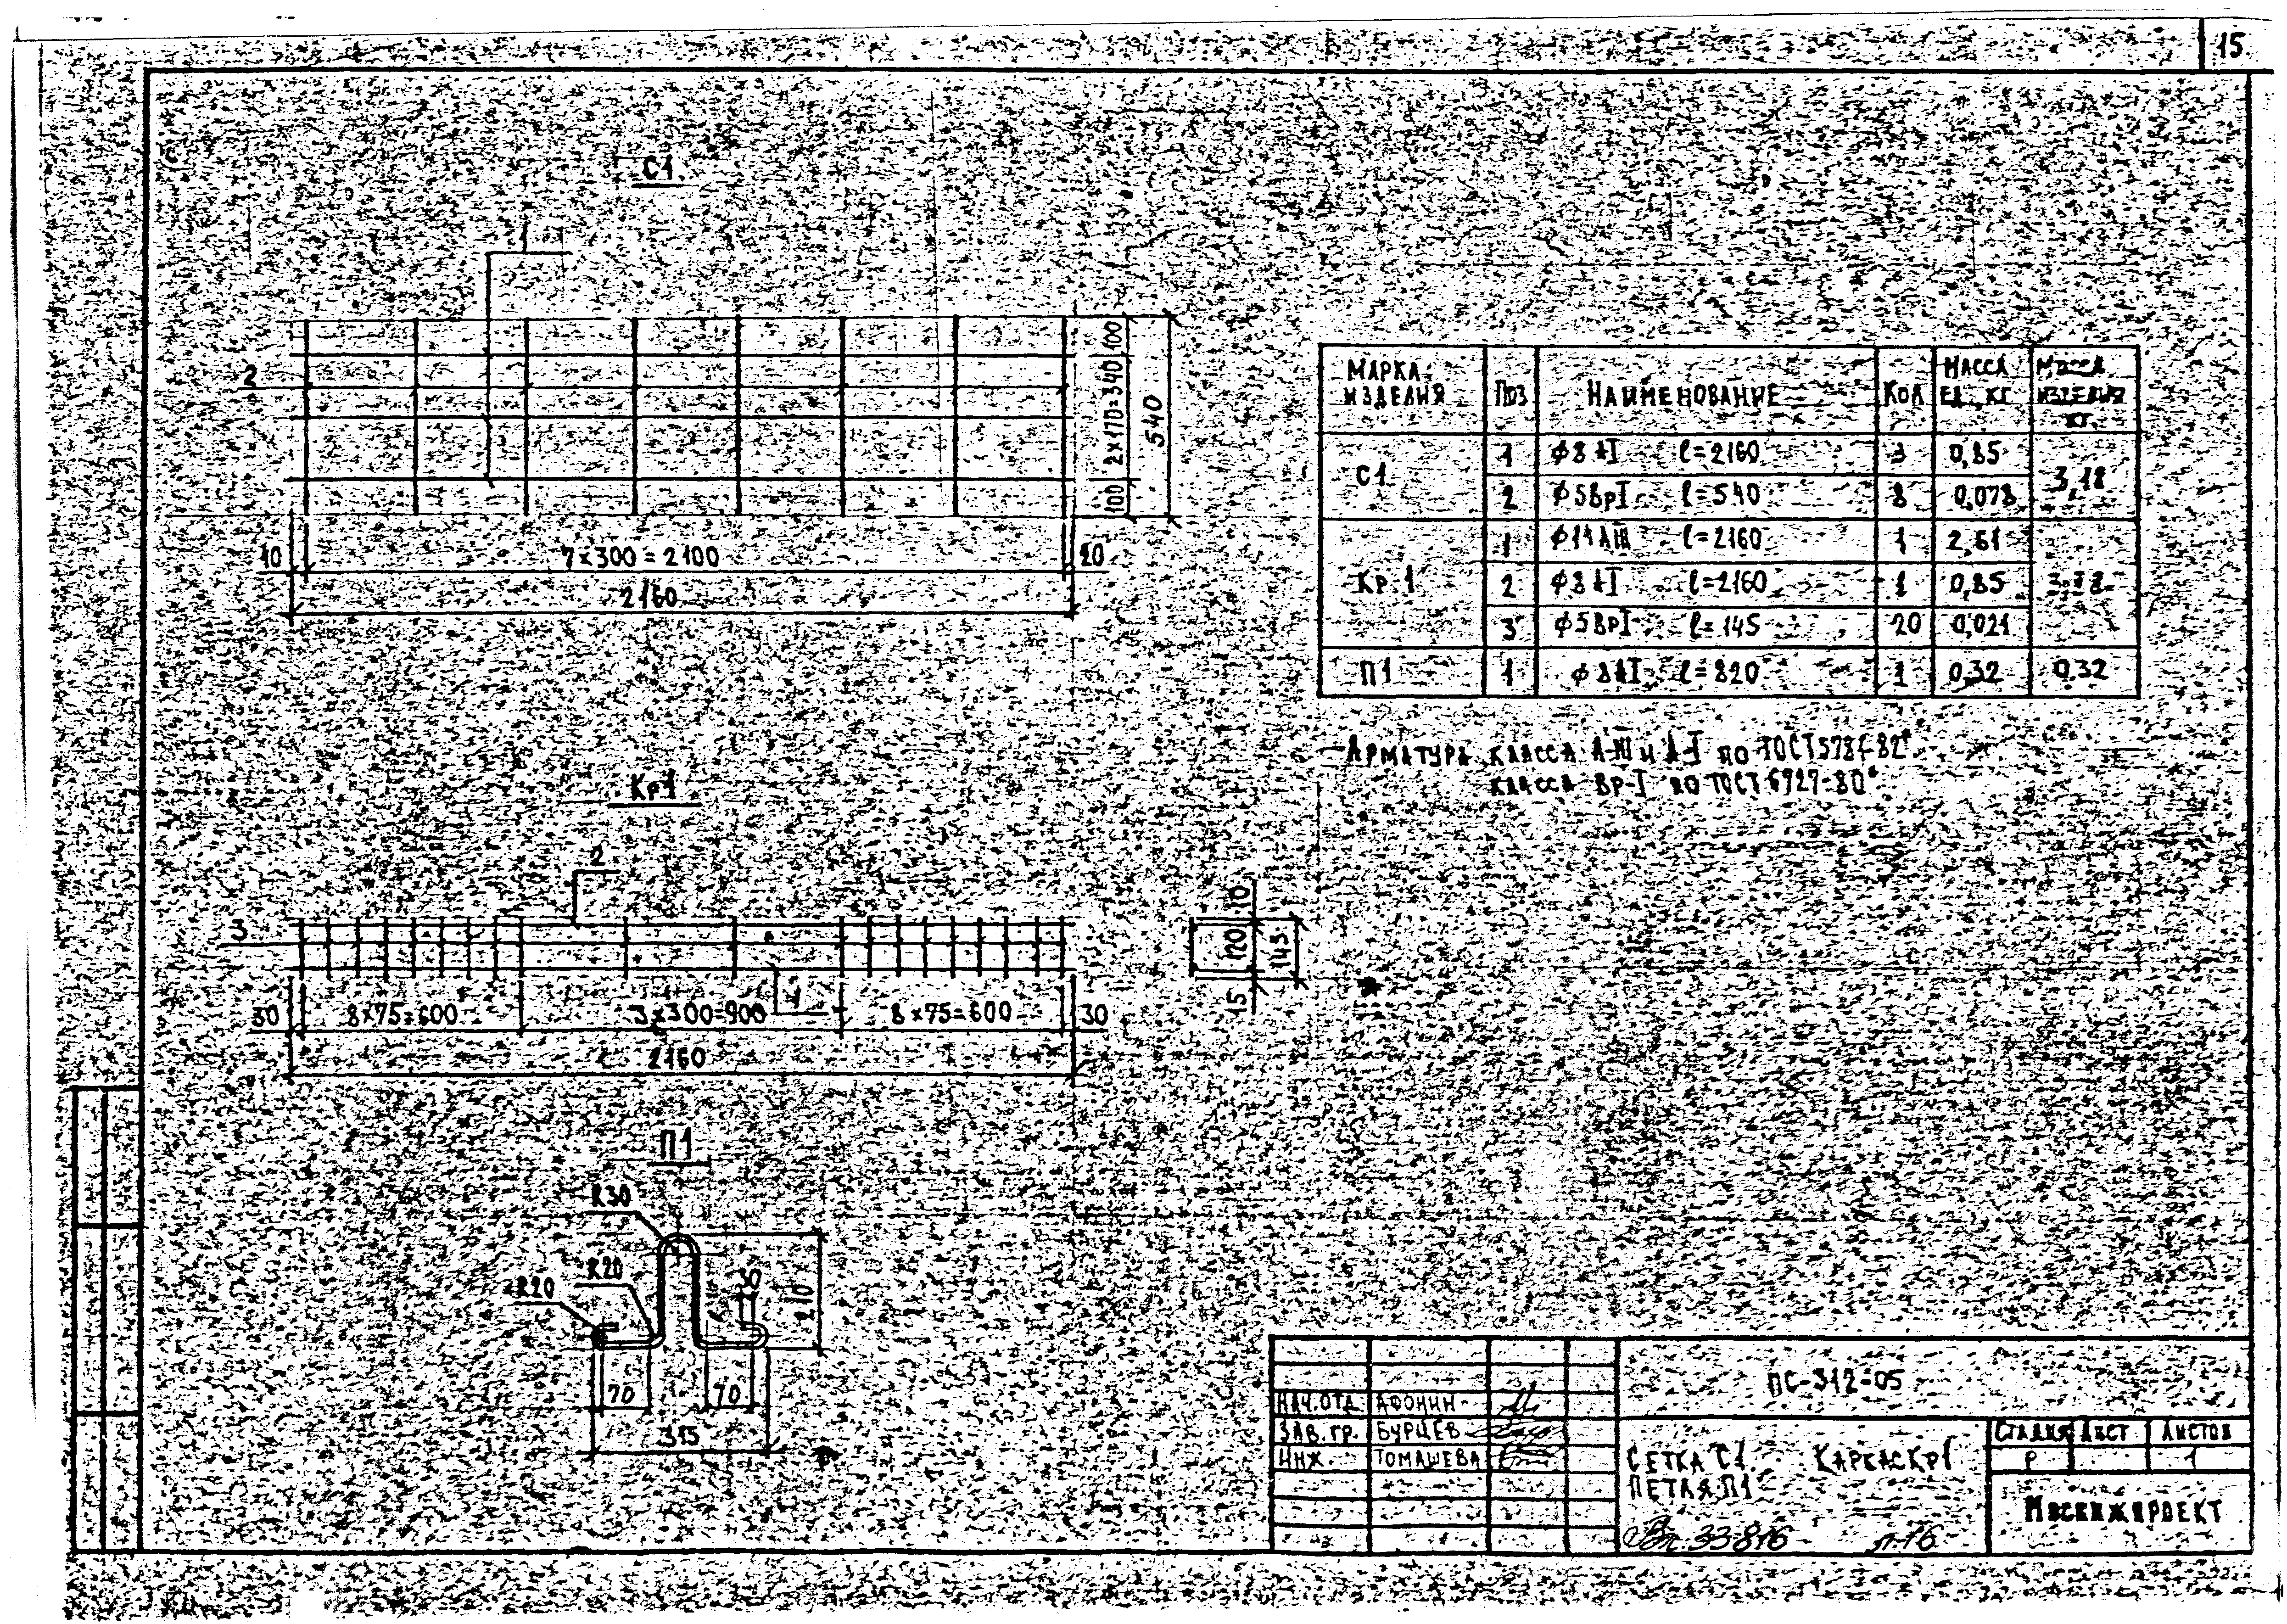 15
С1
1
2
100
2×170=340
100
540
10
7×300=2100
20
2160
МАРКА ИЗДЕЛИЯ ПОЗ НАИМЕНОВАНИЕ КОЛ МАССА ЕД., КГ МАССА ИЗДЕЛИЯ КГ.
С1 1 ϕ8АI ℓ=2160 3 0,85 3,18
2 ϕ5ВрI ℓ=540 8 0,078
Кр.1 1 ϕ14АIII ℓ=2160 1 2,61
2 ϕ8АI ℓ=2160 1 0,85
3 ϕ5ВрI ℓ=145 20 0,021
П1 1 ϕ8АI ℓ=820 1 0,32 0,32
АРМАТУРА КЛАССА А-III и А-I по ГОСТ 5781-82*
КЛАССА Вр-I по ГОСТ 6727-80*
Кр1
2
3
1
10
120
145
15
30
8×75=600
3×300=900
8×75=600
30
2160
П1
R30
R20
R20
30
210
70
70
315
ПС-312-05
НАЧ.ОТД АФОНИН
ЗАВ.ГР. БУРЦЕВ
ИНЖ. ТОМАШЕВА
СЕТКА С1. КАРКАС Кр1
ПЕТЛЯ П1
СТАДИЯ ЛИСТ ЛИСТОВ
Р 1
МОСИНЖПРОЕКТ
Вп. 33816 л.16